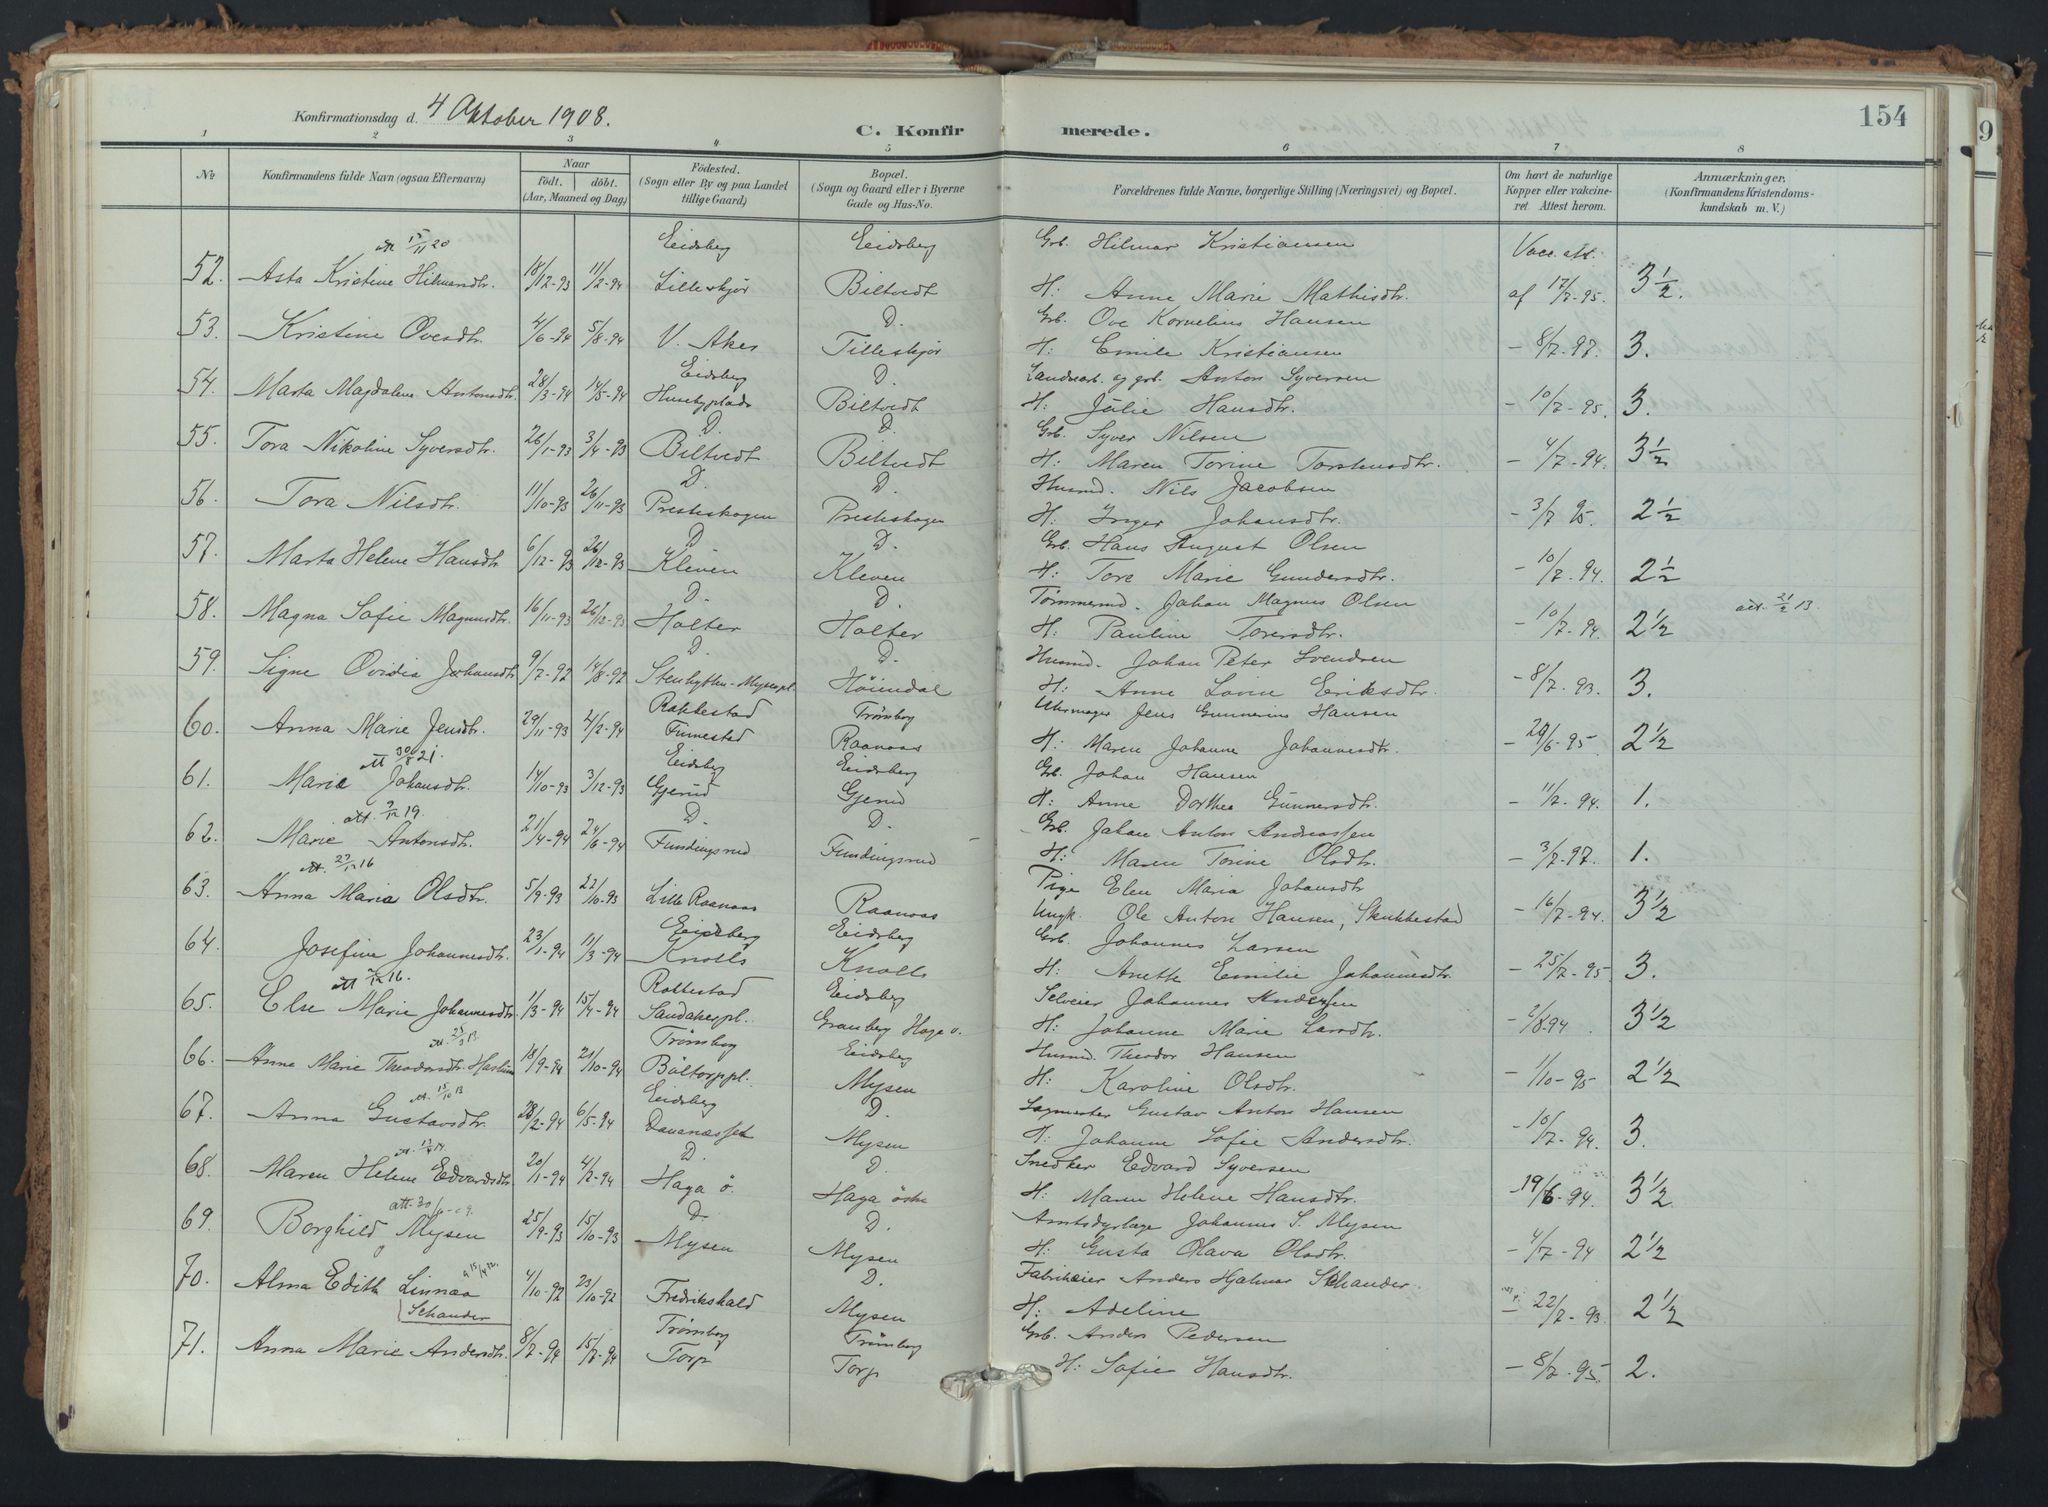 Konfirmationsdag d. 4 Oktober 1908.
C. Konfirmerede.
154
1 2 3 4 5 6 7 8
No
Konfirmandens fulde Navn (ogsaa Efternavn)
Naar
födt. döbt.
(Aar, Maaned og Dag)
Födested.
(Sogn eller By og paa Landet
tillige Gaard)
Bopæl.
(Sogn og Gaard eller i Byerne
Gade og Hus-No.
Forældrenes fulde Navne, borgerlige Stilling (Næringsvei) og Bopæl.
Om havt de naturlige
Kopper eller vakcine-
ret Attest herom.
Anmærkninger.
(Konfirmandens Kristendoms-
kundskab m. V.)
att 15/11 20 Eidsberg Eidsberg Grb. Hilmar Kristiansen Vacc. att.
52. Asta Kristine Hilmarsdtr. 18/12-93 11/2-94 Lilleskjør Biltvedt H: Anne Marie Mathisdtr. af 17/7-95. 3 1/2.
D. Grb. Ove Kornelius Hansen
53. Kristine Ovesdtr. 4/6-94 5/8-94 V. Aker Lilleskjør H: Emile Kristiansen - 8/7-97. 3.
Eidsberg D. Landarb. og grb. Anton Syversen
54. Marta Magdalene Antonsdtr. 28/3-94 14/5-94 Husebyplads Biltvedt H: Julie Hansdtr. - 10/7-95. 3.
D. D. Grb. Syver Nilsen
55. Tora Nikoline Syversdtr. 26/1-93 3/4-93 Biltvedt Biltvedt H: Maren Torine Torstensdtr. - 4/7-94. 3 1/2
D. D. Husmd. Nils Jacobsen
56. Tora Nilsdtr. 11/10-93 26/11-93 Presteskogen Presteskogen H: Inger Johansdtr. - 3/7 95. 2 1/2
D. D. Grb. Hans August Olsen
57. Marta Helene Hansdtr. 6/12-93 26/12-93 Kleven Kleven H: Tora Marie Gundersdtr. - 10/7-94. 2 1/2
D. D. Tømmermd. Johan Magnus Olsen att. 21/2 13.
58. Magna Sofie Magnusdtr. 16/11-93 26/12-93 Holter Holter H: Pauline Toresdtr. - 10/7-94. 2 1/2
D. D. Husmd. Johan Peter Svendsen
59. Signe Ovidia Johansdtr. 9/7-92 14/8-92 Stenhytten-Mysenpl. Høiendal H: Anne Lovise Eriksdtr. - 8/7-93. 3.
Rakkestad Trømborg Uhrmager Jens Gunnerius Hansen
60. Anna Marie Jensdtr. 29/11-93 4/2-94 Finnestad Raanaas H: Maren Johanne Johannesdtr. - 29/6-95 2 1/2
att 30/8 21. Eidsberg Eidsberg Grb. Johan Hansen
61. Marie Johansdtr. 14/10-93 3/12-93 Gjerud Gjerud H: Anne Dorthea Gunnersdtr. - 11/7-94. 1.
att. 9/12 19. D. D. Grb. Johan Anton Andreassen
62. Marie Antonsdtr. 21/4-94 24/6-94 Fundingsrud Fundingsrud H: Maren Torine Olsdtr. - 3/7-97. 1.
att. 27/12 16 Pige Elen Maria Johansdtr
63. Anna Maria Olsdtr. 5/9-93 22/10-93 Lille Raanaas Raanaas Ungk. Ole Anton Hansen, Skukkestad - 16/7-94. 3 1/2
Eidsberg Eidsberg Grb. Johannes Larsen
64. Josefine Johannesdtr. 23/1-94 11/3-94 Knolls Knolls H: Anette Emilie Johannesdtr. - 25/7-95 3.
att 7/12 16. Rakkestad Eidsberg Selveier Johannes Andersen
65. Else Marie Johannesdtr. 1/3-94 15/4-94 Sandakerpl. Granberg Haga ø. H: Johanne Marie Larsdtr. - 2/8-94. 3 1/2
Trømborg Eidsberg Husmd. Theodor Hansen
66. Anna Marie Theodorsdtr. 18/9-94 21/10-94 Båltorppl. Mysen H: Karoline Olsdtr. - 1/10-95 2 1/2
att. 15/10 13 Eidsberg D. Sagmester Gustav Anton Hansen
67. Anna Gustavsdtr. 28/2-94 6/5-94 Mysen H: Johanne Sofie Andersdtr. - 10/7-94. 3.
D. D. Snedker Edvard Syversen
68. Maren Helene Edvardsdtr. 20/1-94 4/2-94 Haga ø. Haga østre H: Maren Helene Hansdtr. - 19/6-94 3 1/2
att. D. D. Amtsdyrlæge Johannes S. Mysen
69. Borghild Mysen 25/9-93 15/10-93 Mysen Mysen H: Gusta Olava Olsdtr. - 4/7-94 2 1/2
D. Fabrikeier Anders Hjalmar Schander.
70. Alma Edith Linnea 4/10-92 23/10-92 Fredrikshald Mysen H: Adeline - 22/7-93 2 1/2
Schander Trømborg Trømborg Grb. Anders Pedersen
71. Anna Marie Andersdtr. 8/7-94 15/7-94 Torp Torp H: Sofie Hansdtr. - 8/7-95. 2.